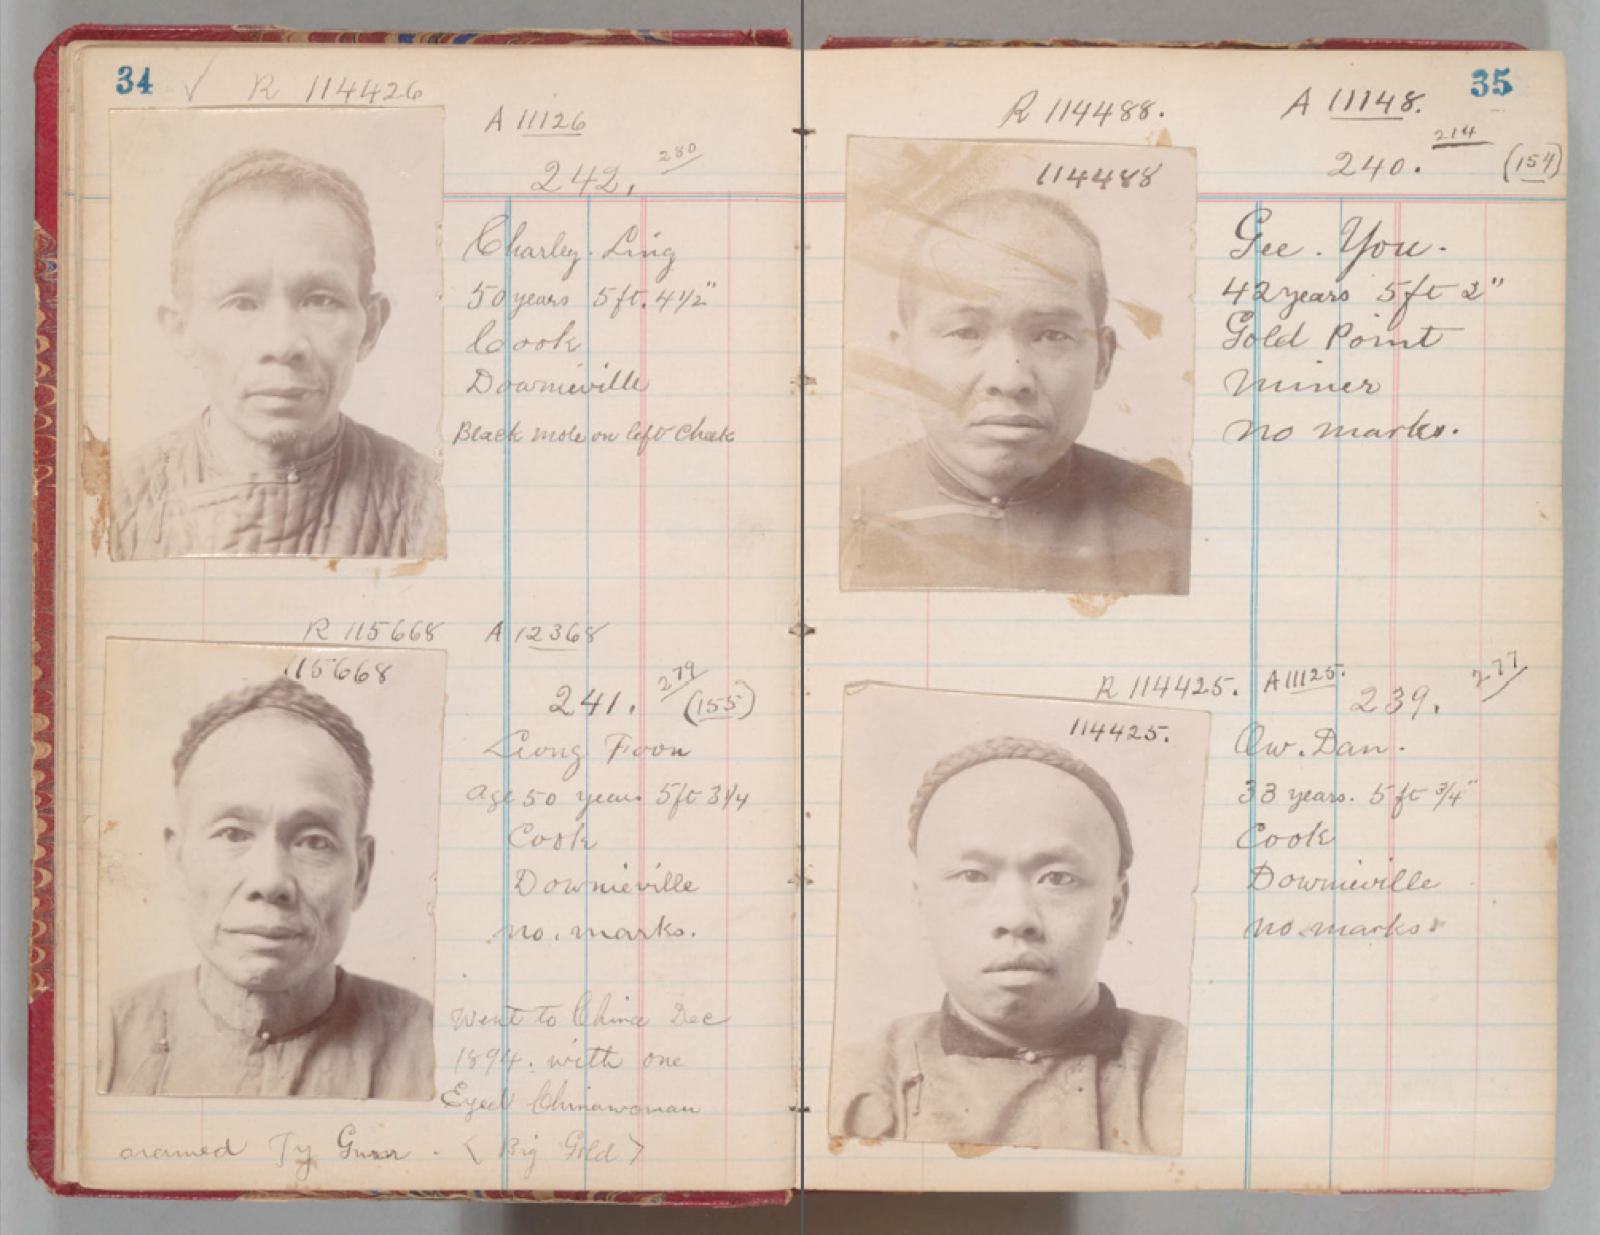 34 ✓ R 114426
A 11126
242. 280
Charley. Ling
50 years 5 ft. 4 1/2"
Cook
Downieville
Black mole on left cheek
R 115668 A 12368
115668
241. 279
(155)
Leong Foon
age 50 years 5ft 3 1/4
Cook
Downieville
no. marks.
Went to China Dec
1894. with one
Eyed Chinawoman
named Ty Gunn. (Big Gold)
35
R 114488. A 11148.
114488
240. 214
(154)
Gee. You.
42 years 5ft 2"
Gold Point
Miner
no marks.
R 114425. A 11125.
114425.
239. 277
Ow. Dan.
33 years. 5 ft 3/4"
Cook
Downieville
no. marks.